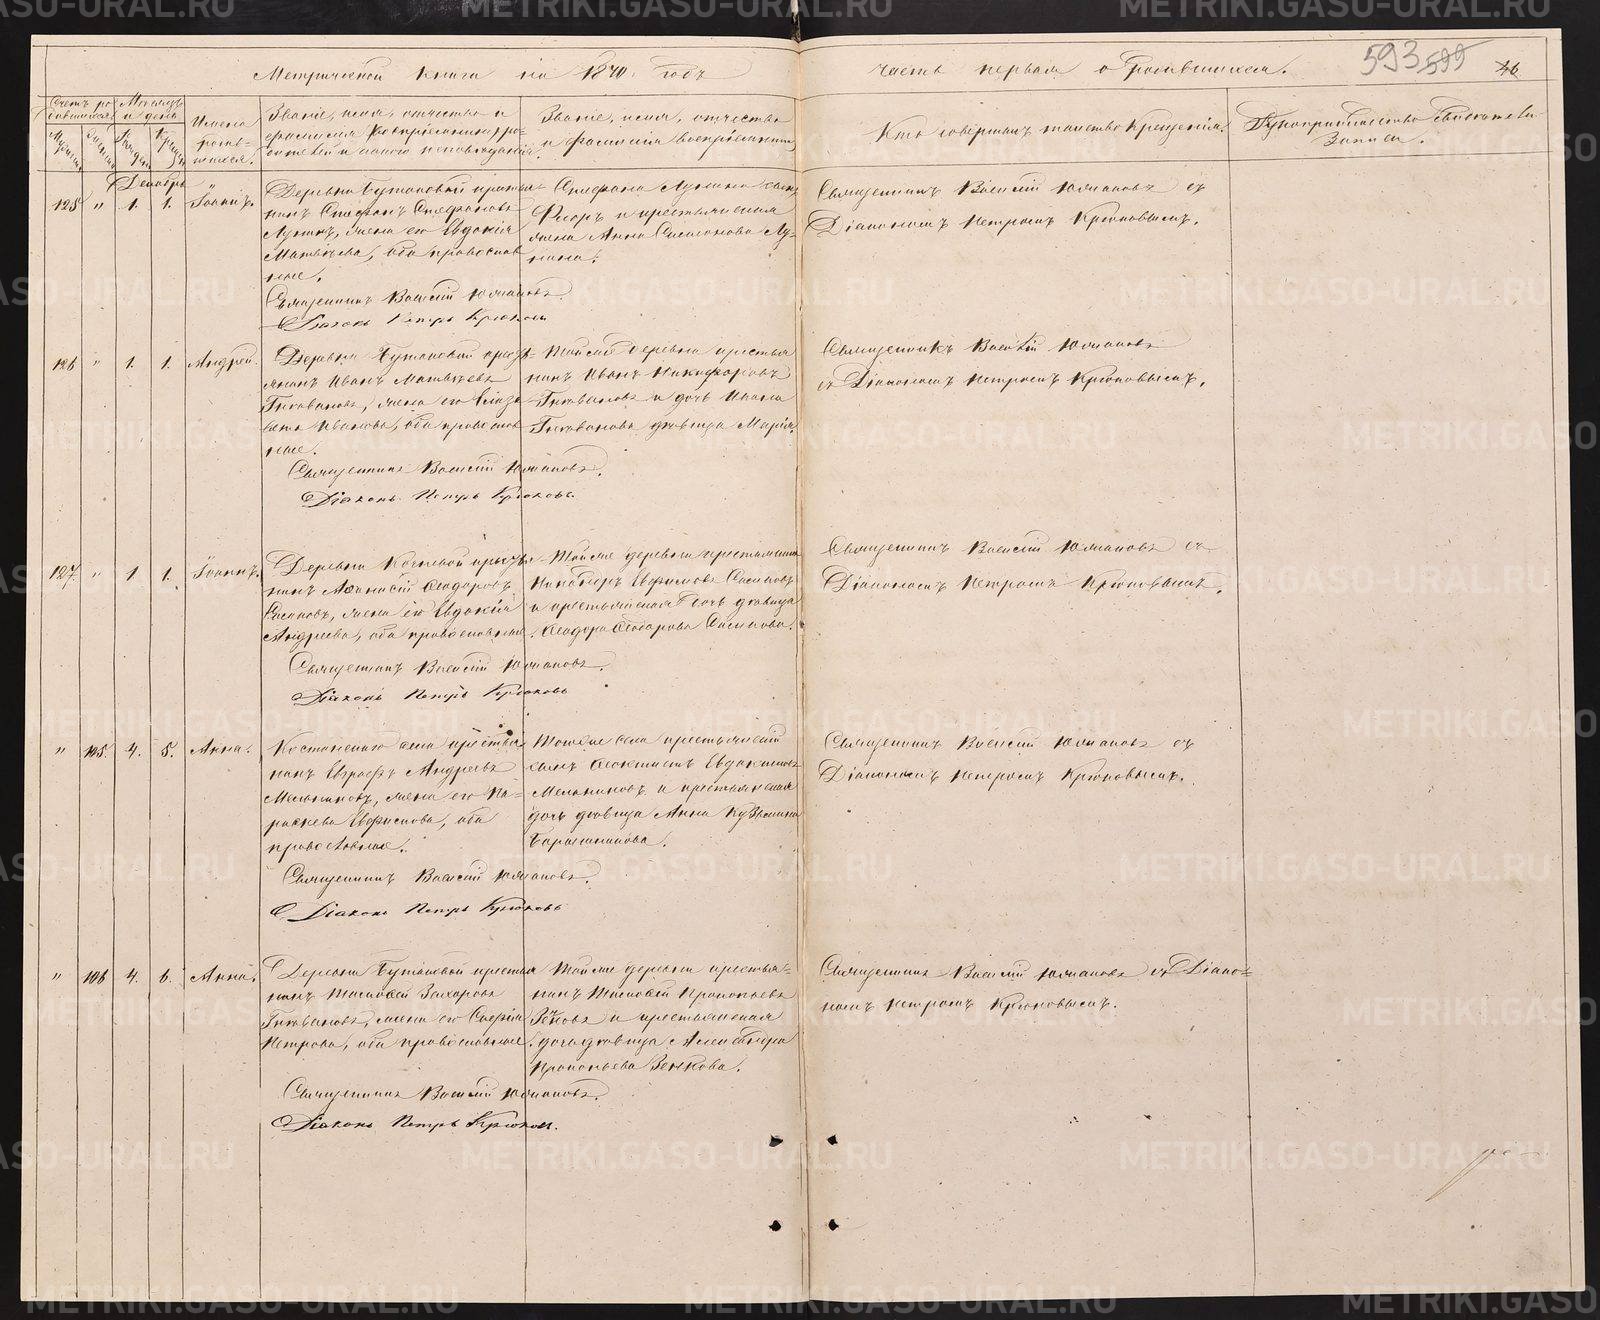 Метрической книги на 1870. годъ
часть первая о родившихся.
593 599
46
Счетъ ро-
дившихся
Мѣсяцъ
и день
Имена
родив-
шихся.
Званіе, имя, отчество и
фамилія
родителей и какого исповѣданія
Званіе, имя, отчество
и фамилія воспріемниковъ
Кто совершалъ таинство крещенія.
Рукоприкладство свидѣтелей
записи.
Декабрь
125 " 1. 1. Іоаннъ.
Деревни Бутаковой крестья-
нинъ Стефанъ Стефановъ
Лукинъ, жена его Евдокія
Матвѣева, оба православ
ные.
Священникъ Василій Юшановъ.
Діаконъ Петръ Крюковъ
Стефана Лукина сынъ
Флоръ и крестьянская
жена Анна
Священникъ Василій Юшановъ съ
Діакономъ Петромъ Крюковымъ.
126 " 1. 1. Андрей.
Деревни Бутаковой кресть-
янинъ Иванъ Матвѣевъ
жена его Елиза
вета Иванова, оба православ
ные.
Священникъ Василій Юшановъ.
Діаконъ Петръ Крюковъ.
Той же деревни крестья
нинъ Иванъ Никифоровъ
и дочь Ивана
дѣвица Марія.
Священникъ Василій Юшановъ
съ Діакономъ Петромъ Крюковымъ.
127. " 1 1. Іоаннъ.
Деревни крестья-
нинъ Аѳанасій Ѳеодоровъ
жена его Евдокія
Андреева, оба православные.
Священникъ Василій Юшановъ.
Діаконъ Петръ Крюковъ
Той же деревни крестьянинъ
Никаноръ Евфимовъ
и крестьянская дочь дѣвица
Ѳеодора Ѳеодорова
Священникъ Василій Юшановъ съ
Діакономъ Петромъ Крюковымъ.
" 105. 4. 5. Анна.
села крестья
нинъ Евграфъ Андреевъ
Мельниковъ, жена его Па-
раскева Евфимова, оба
православные.
Священникъ Василій Юшановъ.
Діаконъ Петръ Крюковъ
Того же села крестьянскій
сынъ Ѳеоктистъ Евдокимовъ
Мельниковъ и крестьянская
дочь дѣвица Анна Кузьмина
Барышникова.
Священникъ Василій Юшановъ съ
Діакономъ Петромъ Крюковымъ.
" 106 4. 6. Анна.
Деревни Бутаковой крестья
нинъ Тимофей Захаровъ
жена его Софія
Петрова, оба православные.
Священникъ Василій Юшановъ.
Діаконъ Петръ Крюковъ.
Той же деревни крестья-
нинъ Тимофей Прокопьевъ
Зенковъ и крестьянская
дочь дѣвица Александра
Прокопьева Зенкова.
Священникъ Василій Юшановъ съ Діако-
номъ Петромъ Крюковымъ.
METRIKI.GASO-URAL.RU